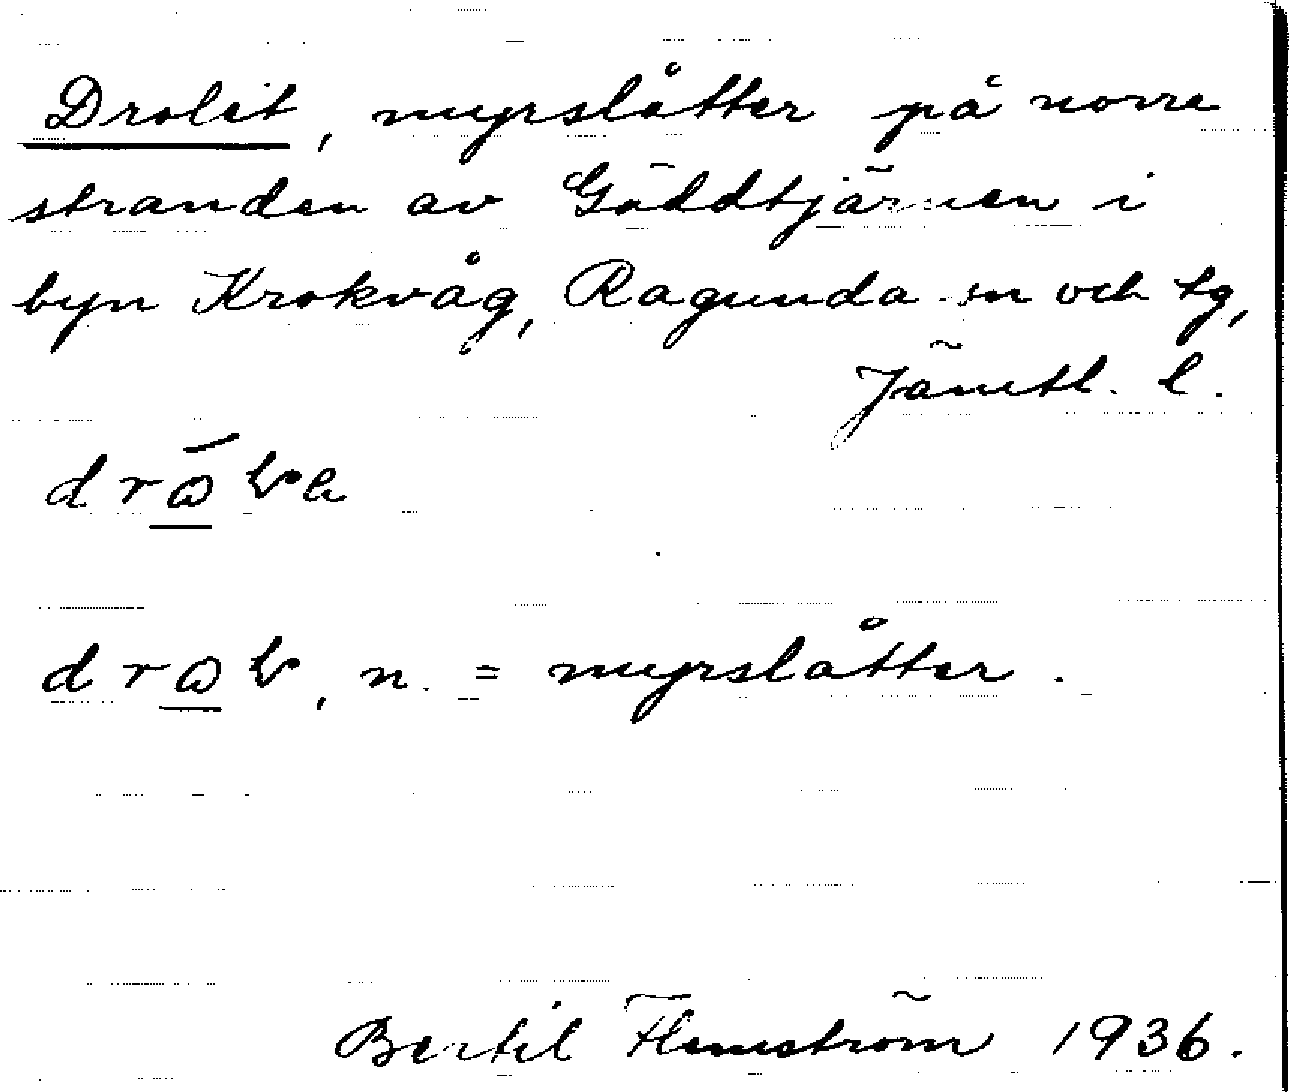 Drolet, myrslåtter på norra
stranden av Gäddtjärnen i
byn Krokvåg, Ragunda sn och tg,
Jämtl. l.
n. = myrslåtter.
Bertil Flemström 1936.